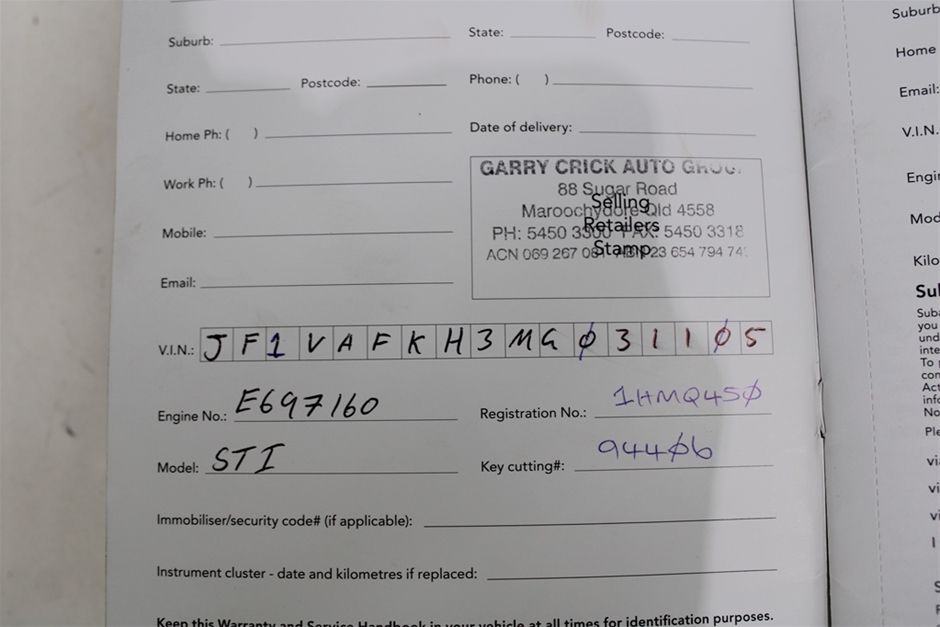 Suburb:
State: Postcode:
State: Postcode:
Phone: ( )
Home Ph: ( )
Date of delivery:
Work Ph: ( )
GARRY CRICK AUTO
88 Sugar Road
Maroochydore Qld 4558
PH: 5450 3300 FAX: 5450 3318
ACN 069 267 ABN 23 654 794
Selling
Retailers
Stamp
Mobile:
Email:
V.I.N.: JF1VAFKH3MG031105
Engine No.: E697160
Registration No.: 1HMQ450
Model: STI
Key cutting#: 94406
Immobiliser/security code# (if applicable):
Instrument cluster - date and kilometres if replaced:
Keep this Warranty and Service Handbook in your vehicle at all times for identification purposes.
Suburb
Home
Email:
V.I.N.